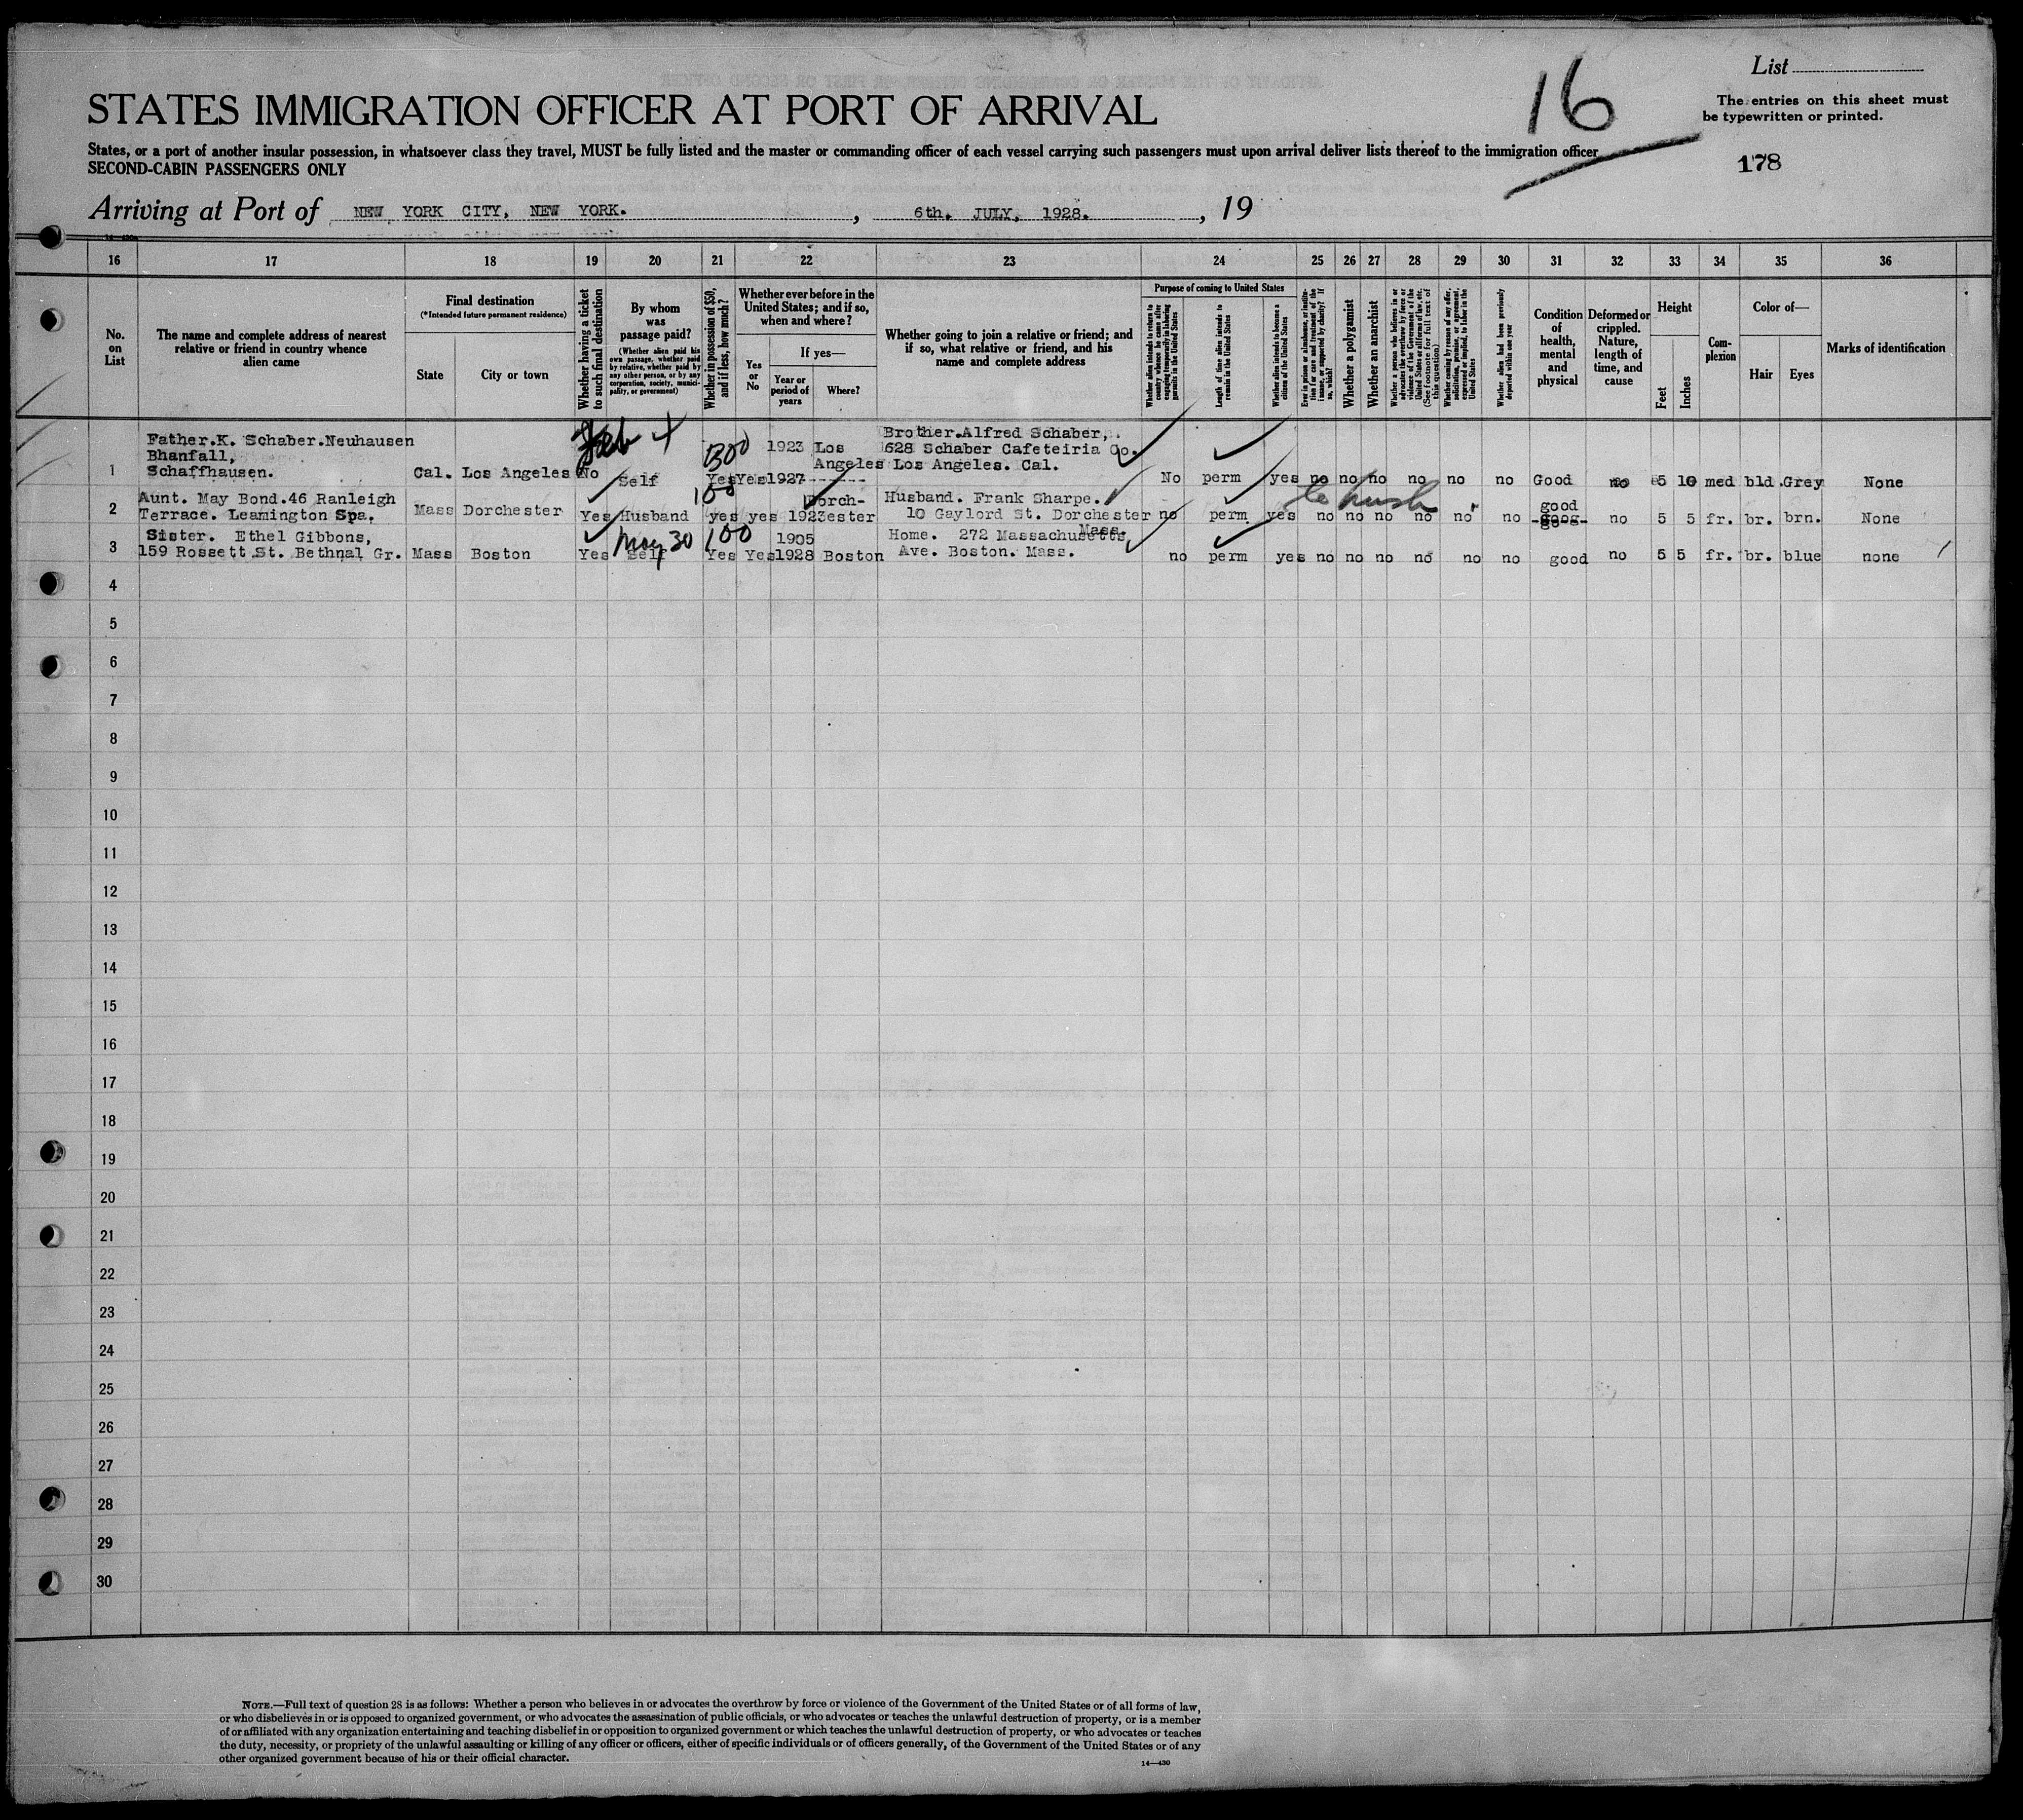 List
16
STATES IMMIGRATION OFFICER AT PORT OF ARRIVAL
The entries on this sheet must
be typewritten or printed.
States, or a port of another insular possession, in whatsoever class they travel, MUST be fully listed and the master or commanding officer of each vessel carrying such passengers must upon arrival deliver lists thereof to the immigration officer
SECOND-CABIN PASSENGERS ONLY
178
Arriving at Port of NEW YORK CITY, NEW YORK. , 6th. JULY, 1928. , 19
16 17 18 19 20 21 22 23 24 25 26 27 28 29 30 31 32 33 34 35 36
No.
on
List
The name and complete address of nearest
relative or friend in country whence
alien came
Final destination
(*Intended future permanent residence)
State
City or town
Whether having a ticket
to such final destination
By whom
was
passage paid?
(Whether alien paid his
own passage, whether paid
by relative, whether paid by
any other person, or by any
corporation, society, munici-
pality, or government)
Whether in possession of $50,
and if less, how much?
Whether ever before in the
United States; and if so,
when and where?
Yes
or
No
If yes—
Year or
period of
years
Where?
Whether going to join a relative or friend; and
if so, what relative or friend, and his
name and complete address
Purpose of coming to United States
Whether alien intends to return to
country whence he came after
engaging temporarily in laboring
pursuits in the United States
Length of time alien intends to
remain in the United States
Whether alien intends to become a
citizen of the United States
Ever in prison or almshouse, or institu-
tion for care and treatment of the
insane, or supported by charity? If
so, which?
Whether a polygamist
Whether an anarchist
Whether a person who believes in or
advocates the overthrow by force or
violence of the Government of the
United States or all forms of law, etc.
(See footnote for full text of
this question)
Whether coming by reason of any offer,
solicitation, promise, or agreement,
expressed or implied, to labor in the
United States
Whether alien had been previously
deported within one year
Condition
of
health,
mental
and
physical
Deformed or
crippled.
Nature,
length of
time, and
cause
Height
Feet
Inches
Com-
plexion
Color of—
Hair
Eyes
Marks of identification
Father.K. Schaber.Neuhausen
Bhanfall,
1 Schaffhausen. Cal. Los Angeles No Self 1300 Yes Yes 1923 1927 Los Angeles Brother.Alfred Schaber,
628 Schaber Cafeteiria Co.
Los Angeles. Cal. No perm yes no no no no no no Good no 5 10 med bld. Grey None
Aunt. May Bond.46 Ranleigh
2 Terrace. Leamington Spa. Mass Dorchester Yes Husband 100 yes yes 1923 Dorch-
ester Husband. Frank Sharpe.
10 Gaylord St. Dorchester Mass. no perm yes no no no no no no good goog no 5 5 fr. br. brn. None
to husb
Sister. Ethel Gibbons,
3 159 Rossett St. Bethnal Gr. Mass Boston Yes Self May 30 100 Yes Yes 1905
1928 Boston Home. 272 Massachusetts
Ave. Boston. Mass. no perm yes no no no no no no good no 5 5 fr. br. blue none
4
5
6
7
8
9
10
11
12
13
14
15
16
17
18
19
20
21
22
23
24
25
26
27
28
29
30
NOTE.—Full text of question 28 is as follows: Whether a person who believes in or advocates the overthrow by force or violence of the Government of the United States or of all forms of law,
or who disbelieves in or is opposed to organized government, or who advocates the assassination of public officials, or who advocates or teaches the unlawful destruction of property, or is a member
of or affiliated with any organization entertaining and teaching disbelief in or opposition to organized government or which teaches the unlawful destruction of property, or who advocates or teaches
the duty, necessity, or propriety of the unlawful assaulting or killing of any officer or officers, either of specific individuals or of officers generally, of the Government of the United States or of any
other organized government because of his or their official character.
14—430